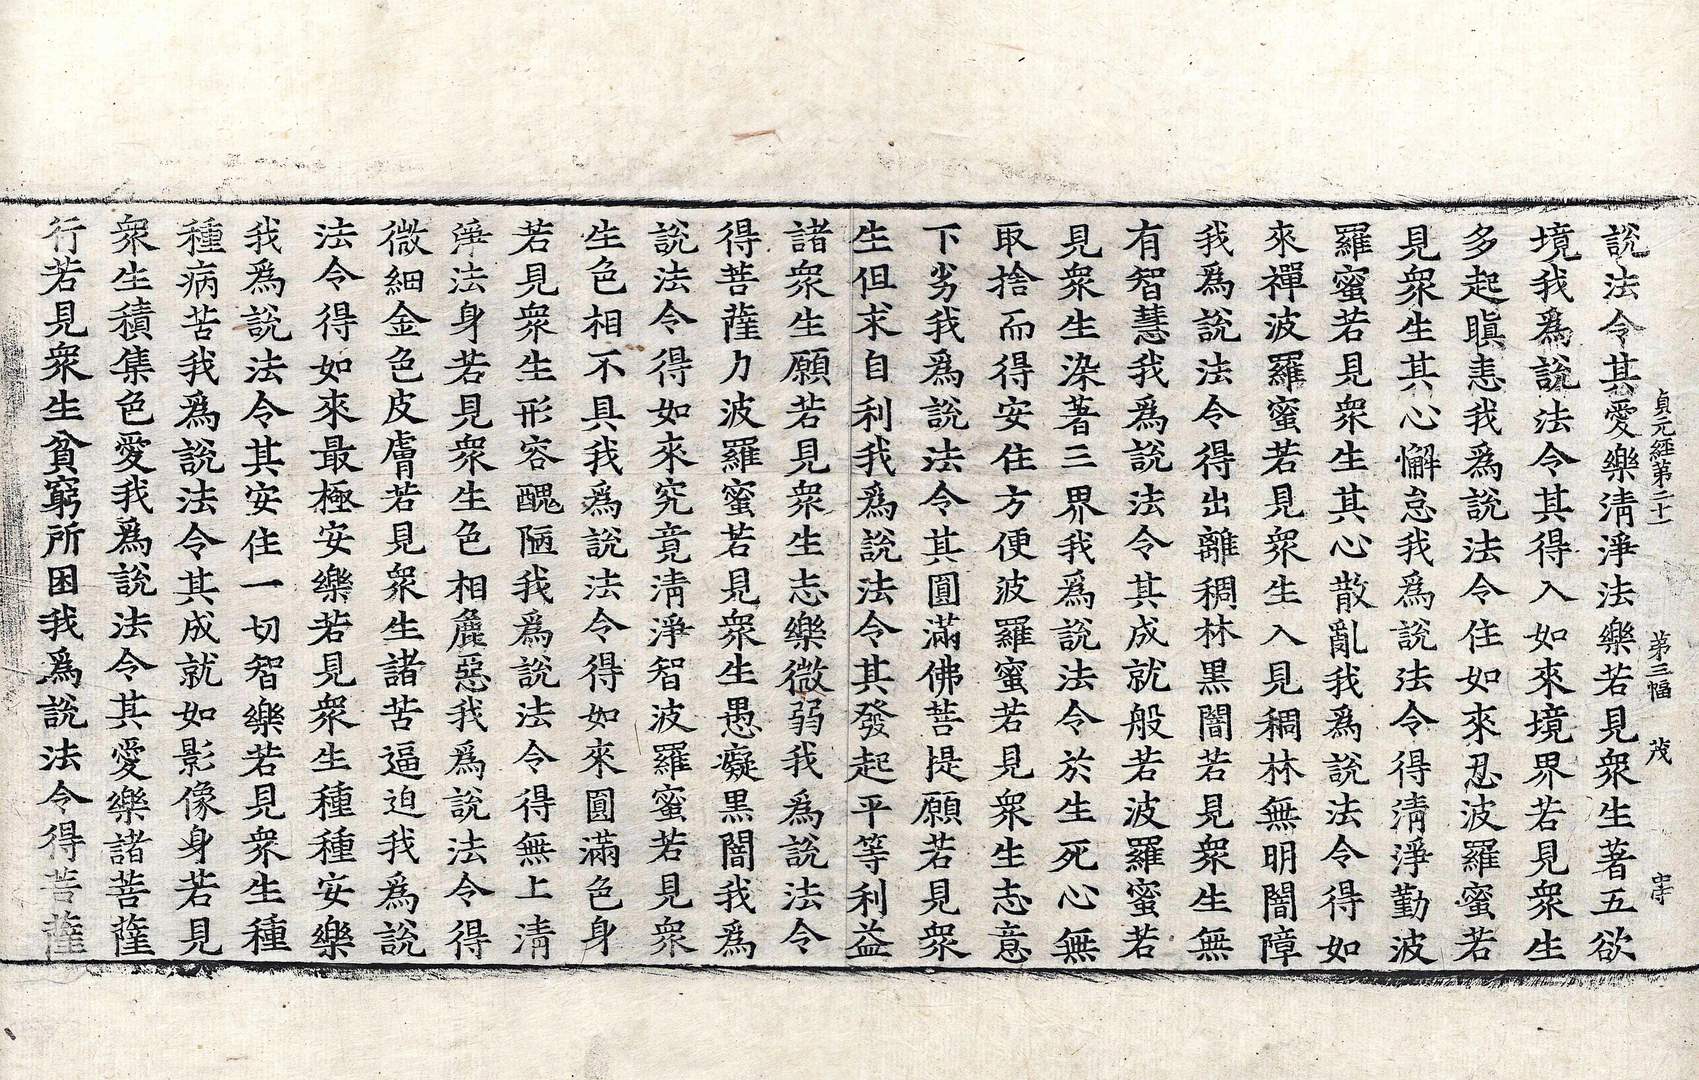 貞元經第二十一　第三幅　茂　守
說法令其愛樂清淨法樂若見衆生著五欲
境我爲說法令其得入如來境界若見衆生
多起瞋恚我爲說法令住如來忍波羅蜜若
見衆生其心懈怠我爲說法令得清淨勤波
羅蜜若見衆生其心散亂我爲說法令得如
來禪波羅蜜若見衆生入見稠林無明闇障
我爲說法令得出離稠林黑闇若見衆生無
有智慧我爲說法令其成就般若波羅蜜若
見衆生染著三界我爲說法令於生死心無
取捨而得安住方便波羅蜜若見衆生志意
下劣我爲說法令其圓滿佛菩提願若見衆
生但求自利我爲說法令其發起平等利益
諸衆生願若見衆生志樂微弱我爲說法令
得菩薩力波羅蜜若見衆生愚癡黑闇我爲
說法令得如來究竟清淨智波羅蜜若見衆
生色相不具我爲說法令得如來圓滿色身
若見衆生形容醜陋我爲說法令得無上清
淨法身若見衆生色相麁惡我爲說法令得
微細金色皮膚若見衆生諸苦逼迫我爲說
法令得如來最極安樂若見衆生種種安樂
我爲說法令其安住一切智樂若見衆生種
種病苦我爲說法令其成就如影像身若見
衆生積集色愛我爲說法令其愛樂諸菩薩
行若見衆生貧窮所困我爲說法令得菩薩